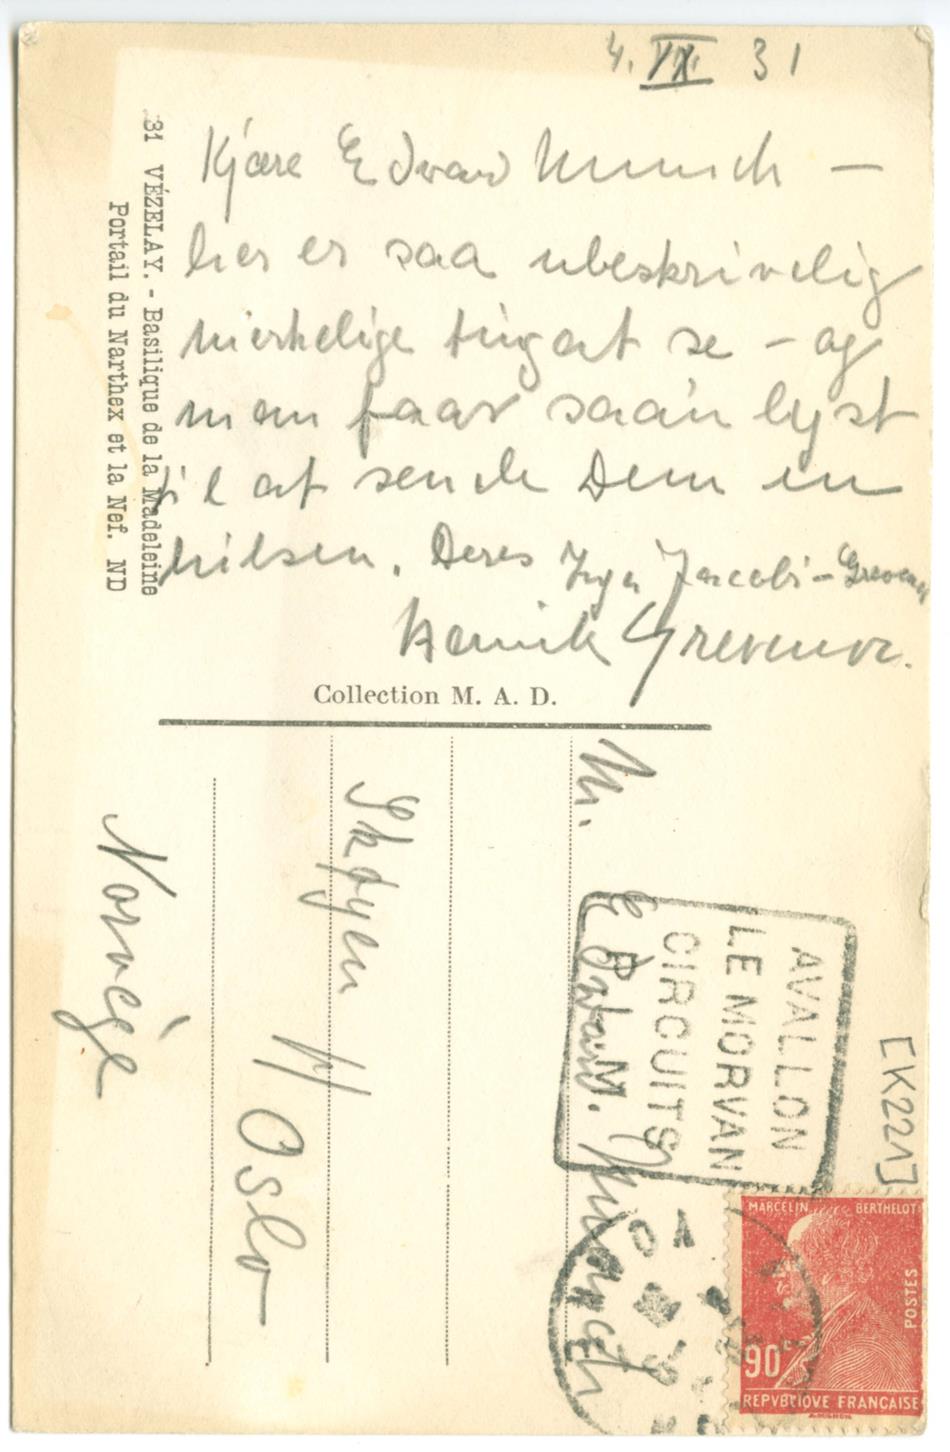 4. IX. 31
Kjære Edvard Munch —
her er saa ubeskrivelig
merkelige ting at se – og
man faar saa'n lyst
til at sende Dem en
hilsen. Deres Inga Jacobi-Grevenor
Henrik Grevenor.
31 VÉZELAY. - Basilique de la Madeleine
Portail du Narthex et la Nef. ND
Collection M. A. D.
M.
Edvard Munch
Skøyen
Oslo
Norvège
AVALLON
LE MORVAN
CIRCUITS
P. L. M.
[K221]
MARCELIN BERTHELOT
POSTES
90c
REPVBLIQVE FRANCAISE